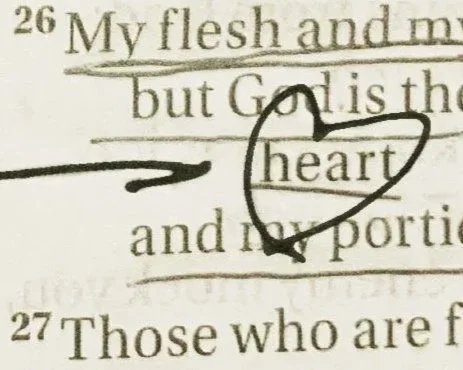 26 My flesh and my
but God is the
heart
and my porti
27 Those who are f